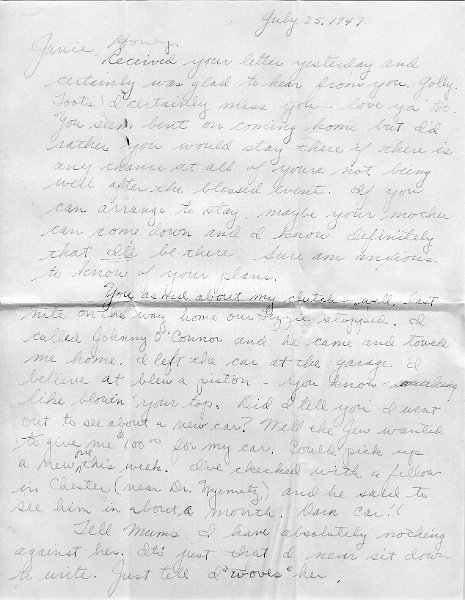 July 25, 1947.
Janie, Honey.
Received your letter yesterday and
certainly was glad to hear from you. Golly,
Toots, I certainly miss you - love ya too.
You seem bent on coming home but I'd
rather you would stay there if there is
any chance at all of yours not being
well after the blessed event. If you
can arrange to stay, maybe your mother
can come down and I know definitely
that I'll be there. Sure am anxious
to know of your plans.
You asked about my clutch - well, last
nite on the way home our Lizzie stopped. I
called Johnny O'Connor and he came and towed
me home. I left the car at the garage. I'd
believe at blew a piston - you know - something
like blowin' your top. Did I tell you I went
out to see about a new car? Well the Jew wanted
to give me $100.00 for my car. Could pick up
a new one this week. I've checked with a fellow
in Chester (near Dr. ) and he said to
see him in about a month. Darn car!!
Tell Mums I have absolutely nothing
against her. It's just that I never sit down
to write. Just tell I "woves" her.